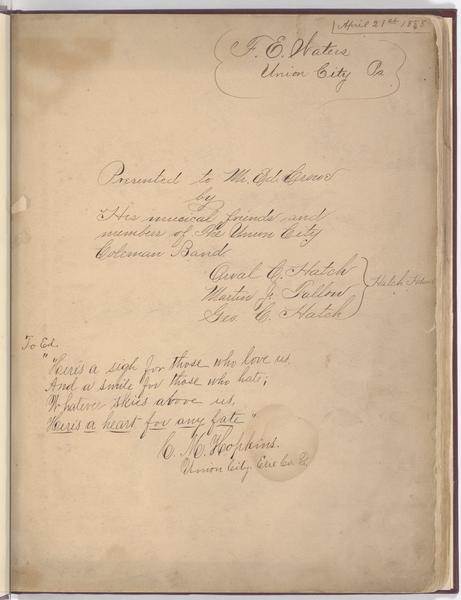 April 21st 1888
F. E. Waters
Union City Pa
Presented to Mr. Ed.
by
His musical friends and
members of The Union City
Coleman Band
Orval C. Hatch
Martin J. Fallon
Geo. C. Hatch
Hatch
To Ed.
"Here's a sigh for those who love us,
And a smile for those who hate;
Whatever skies above us,
Here's a heart for any fate"
C. M. Hopkins.
Union City, Erie Co. Pa.